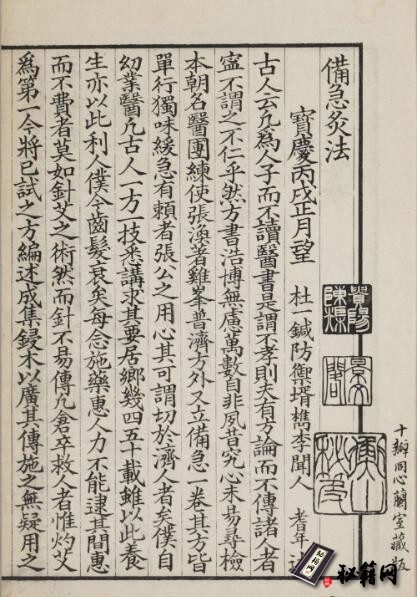 備急灸法
寶慶丙戌正月望　杜一鍼防禦壻檇李聞人　耆年　述
古人云凡為人子而不讀醫書是謂不孝則夫有方論而不傳諸人者
寧不謂之不仁乎然方書浩博無慮萬數自非夙昔究心未易尋檢
本朝名醫團練使張渙著雞峯普濟方外又立備急一卷其方皆
單行獨味緩急有賴者張公之用心其可謂切於濟人者矣僕自
幼業醫凡古人一方一技悉講求其要居鄉幾四五十載雖以此養
生亦以此利人僕今齒髮衰矣每念施藥惠人力不能逮其間惠
而不費者莫如針艾之術然而針不易傳凡倉卒救人者惟灼艾
為第一今將已試之方編述成集鋟木以廣其傳施之無疑用之
十瓣同心蘭室藏版
秘籍网
秘籍网